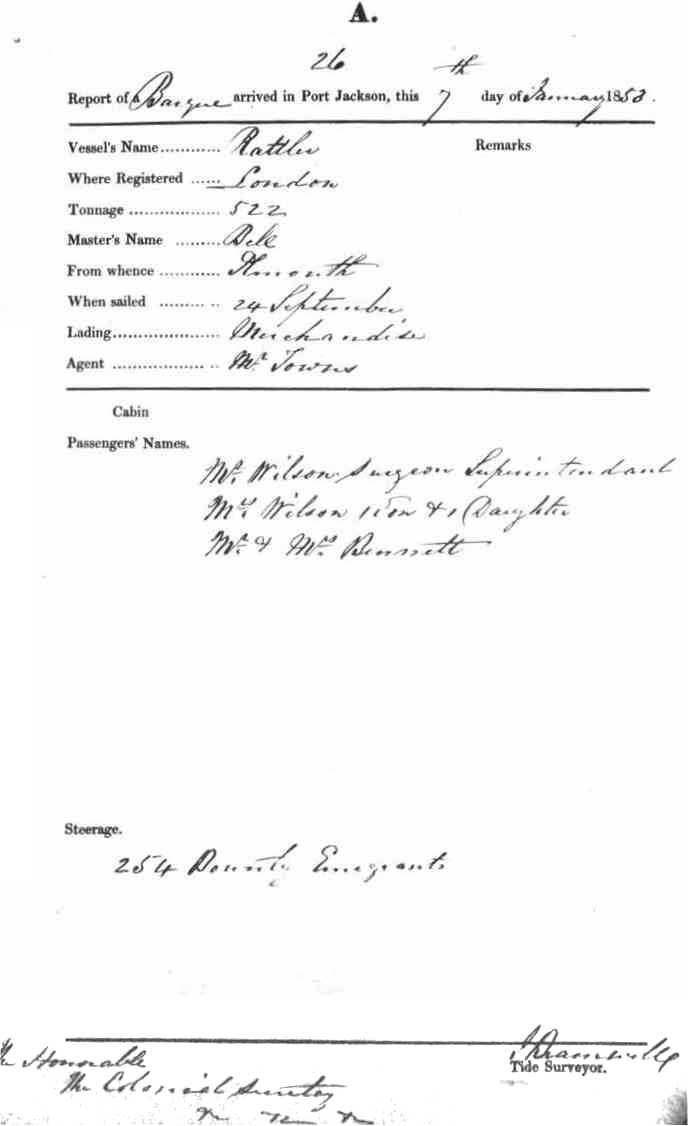 A.
26
Report of a Barque arrived in Port Jackson, this 7th day of January 1853.
Vessel's Name ............ Rattler
Remarks
Where Registered ...... London
Tonnage .................. 522
Master's Name ......... Bell
From whence ............ Plmouth
When sailed ......... .. 24 September
Lading..................... Merchandise
Agent .................. .. Mr. Towns
Cabin
Passengers' Names.
Mr. Wilson Surgeon Superintendant
Mrs. Wilson 1 Son & 1 Daughter
Mr. & Mrs. Bennett
Steerage.
254 Bounty Emigrants
The Honorable
The Colonial Secretary
Tide Surveyor.